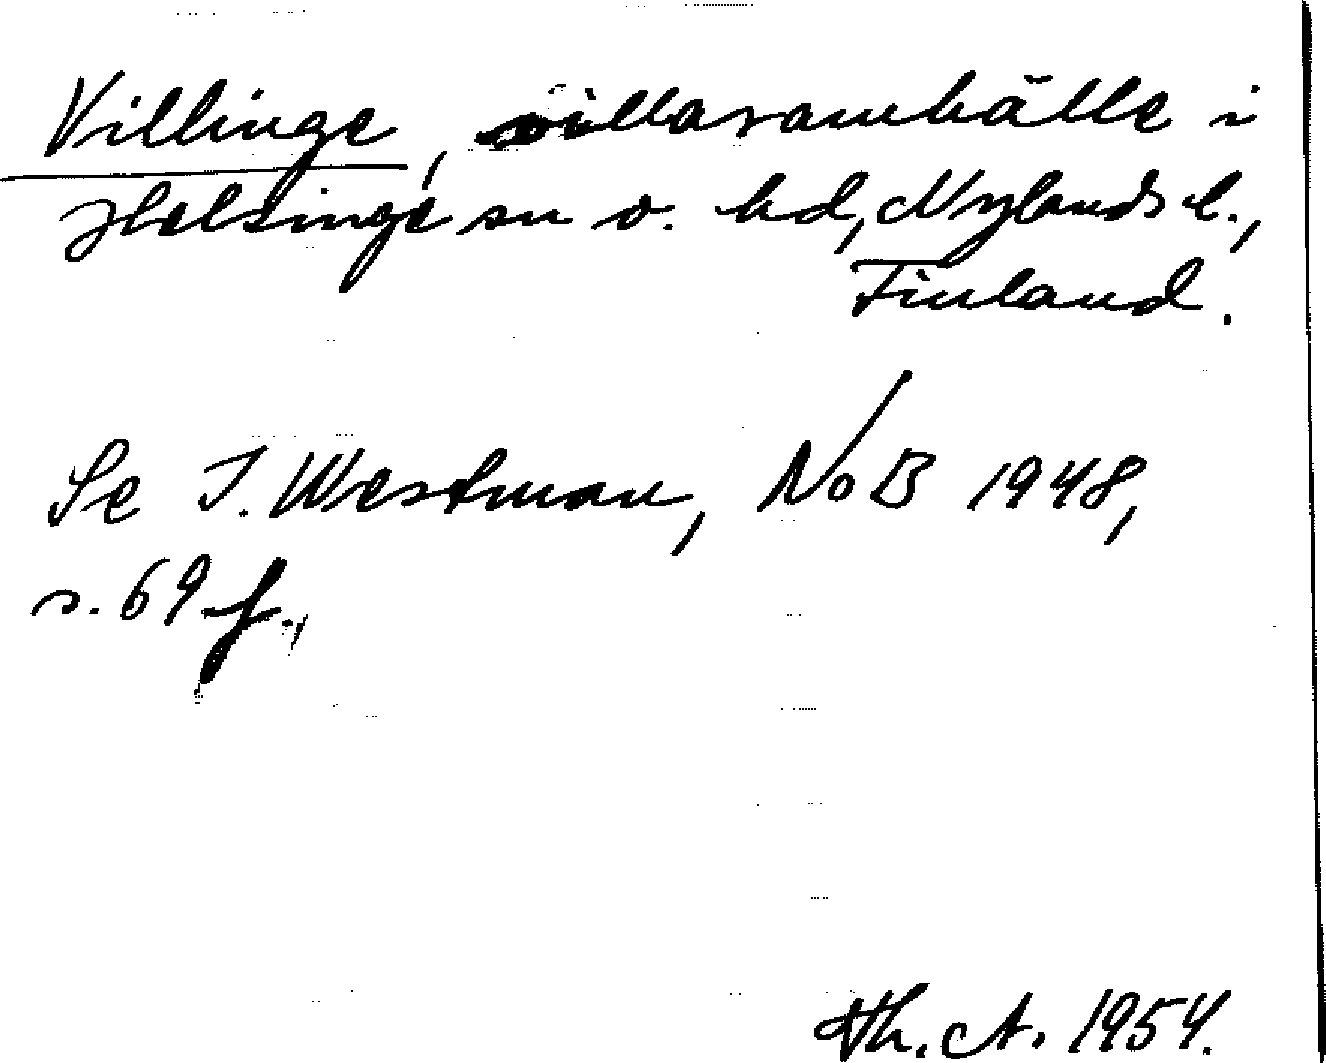 Villinge, villasamhälle i
Helsinge sn o. hd, Nylands l.,
Finland.
Se I. Westman, NoB 1948,
s. 69 f.,
Th. A. 1954.